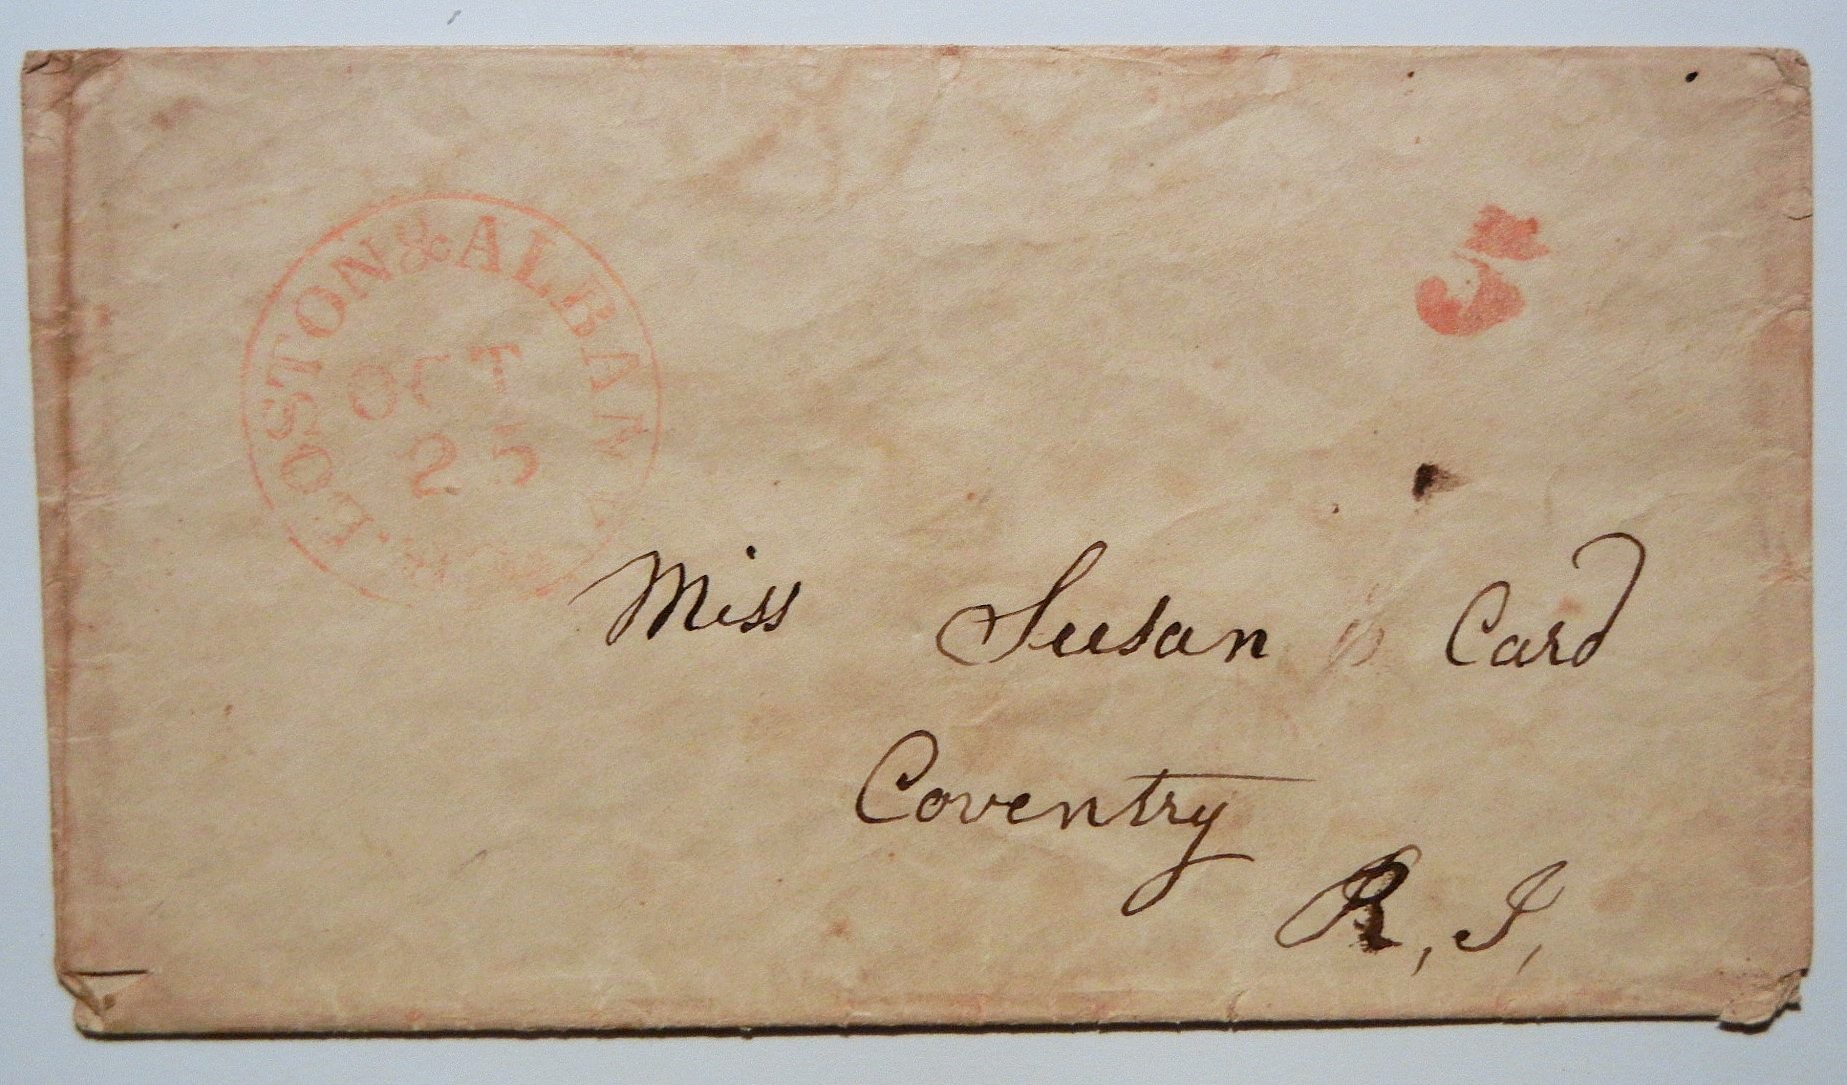 BOSTON & ALBANY
OCT
25
5
Miss Susan Card
Coventry
R, I,